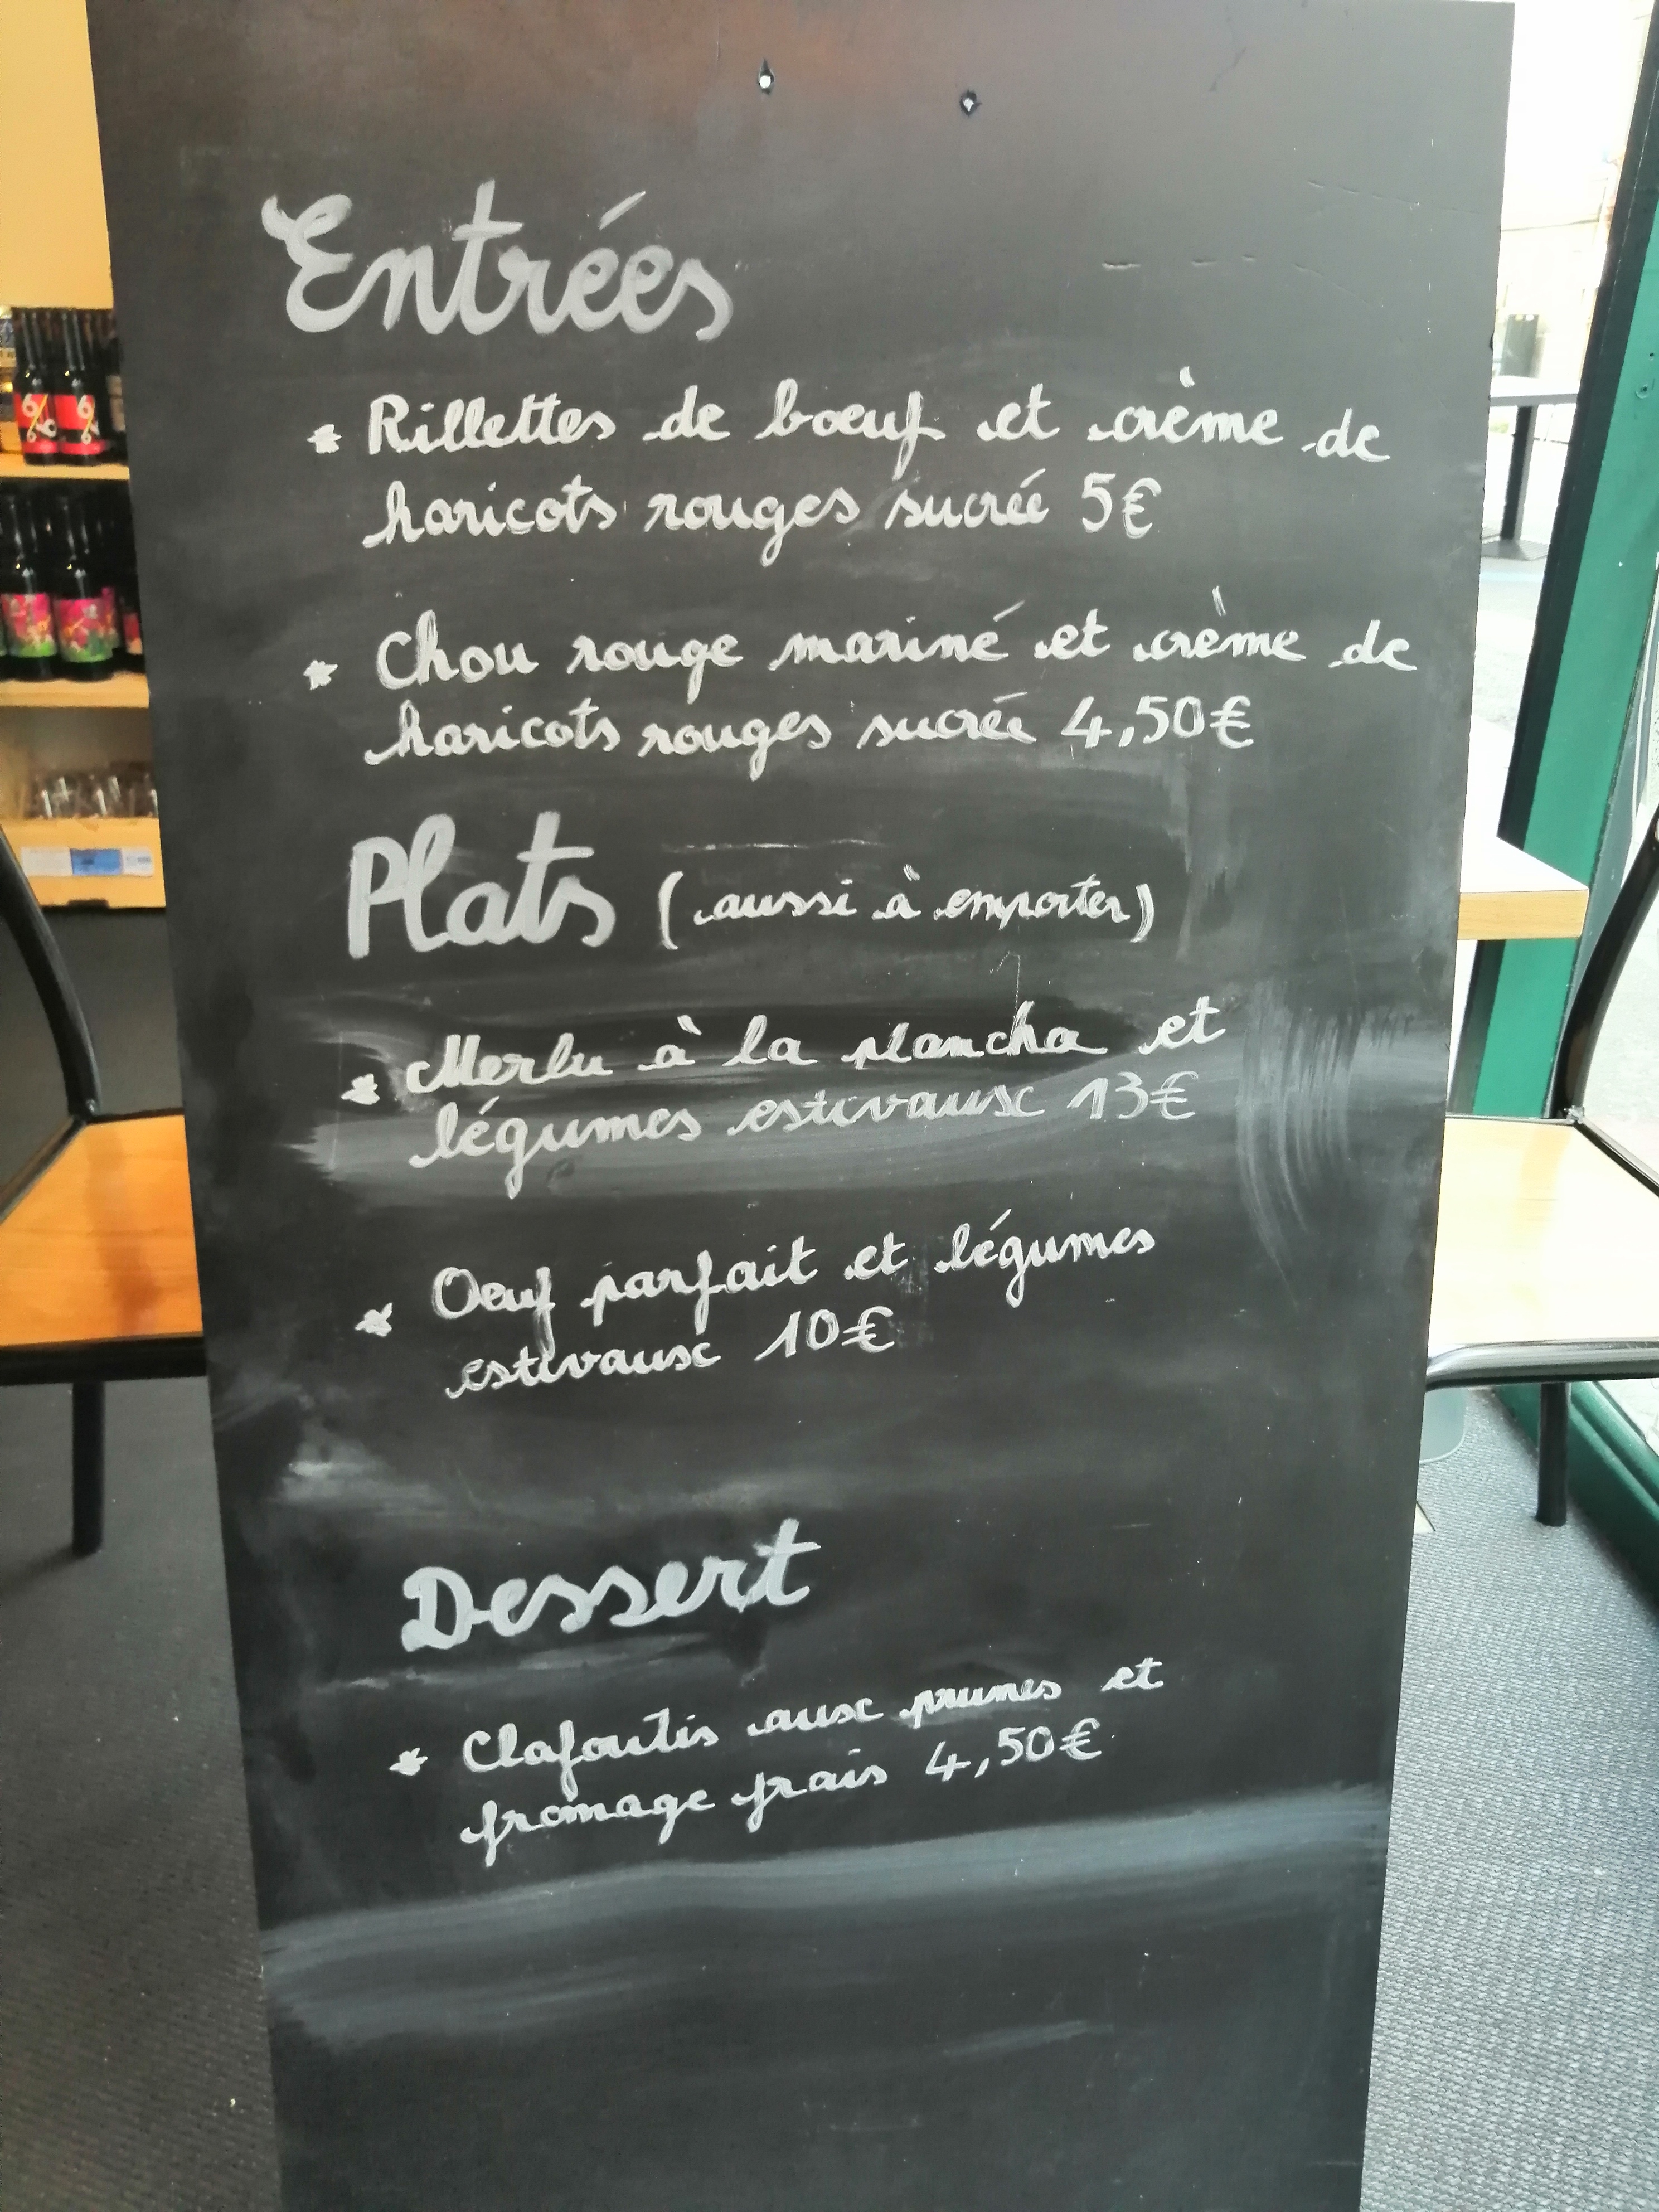 Entrées
* Rillettes de bœuf et crème de
haricots rouges sucrée 5€
* Chou rouge mariné et crème de
haricots rouges sucrée 4,50€
Plats (aussi à emporter)
* Merlu à la plancha et
légumes estivaux 13€
* Oeuf parfait et légumes
estivaux 10€
Dessert
* Clafoutis aux prunes et
fromage frais 4,50€